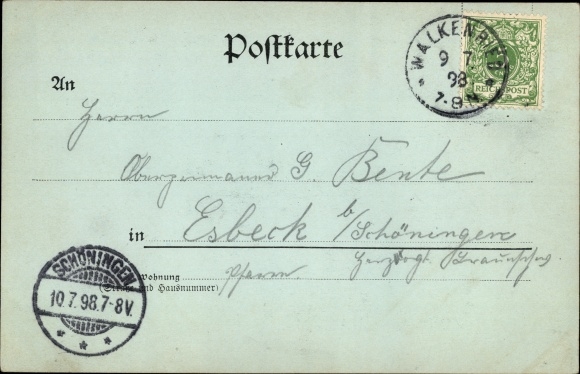 Postkarte
WALKENRIED
9 7
98
7-8 N
REICHSPOST
An
Herrn
G. Bente
in Esbeck b/Schöningen
Herzogt. Braunschw.
Wohnung
Pfarre
(Straße und Hausnummer)
SCHÖNINGEN
10.7.98.7-8V.